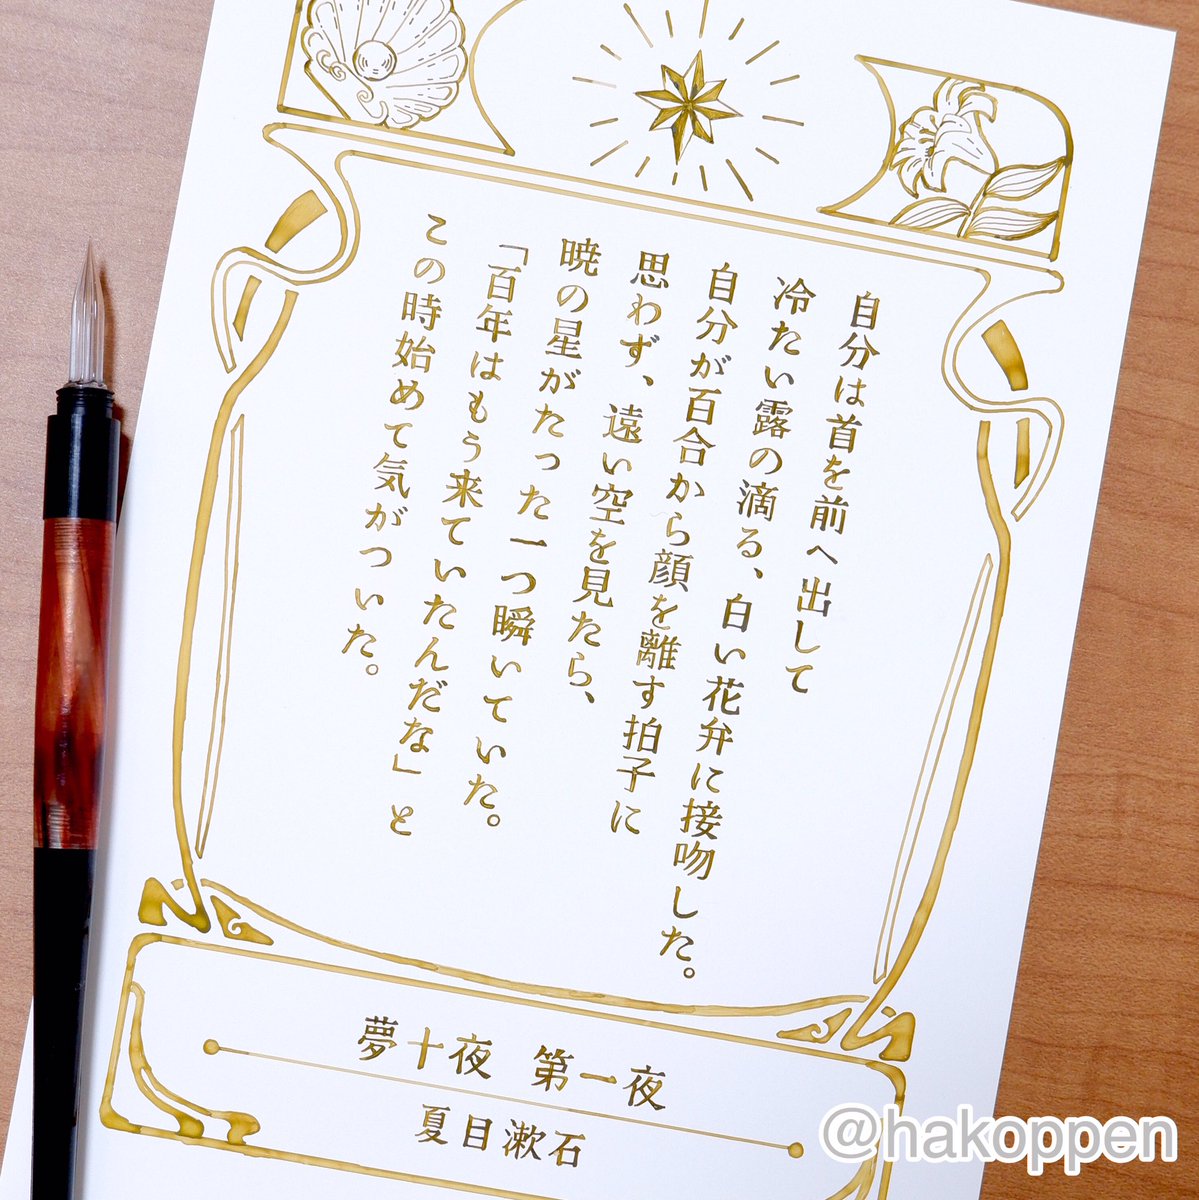 自分は首を前へ出して
冷たい露の滴る、白い花弁に接吻した。
自分が百合から顔を離す拍子に
思わず、遠い空を見たら、
暁の星がたった一つ瞬いていた。
「百年はもう来ていたんだな」と
この時始めて気がついた。
夢十夜 第一夜
夏目漱石
@hakoppen